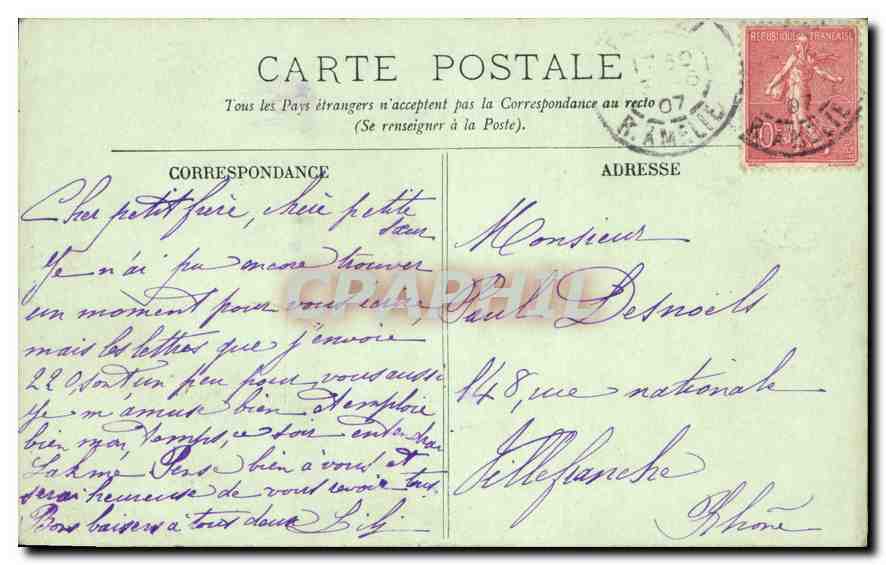 CARTE POSTALE
Tous les Pays étrangers n'acceptent pas la Correspondance au recto
(Se renseigner à la Poste).
RÉPUBLIQUE FRANÇAISE
07
R. AMELIE
07
R. AMELIE
10
CORRESPONDANCE
Cher petit frère, chère petite
sœur
Je n'ai pu encore trouver
un moment pour vous écrire,
mais les lettres que j'envoie
220, sont un peu pour vous aussi
Je m'amuse bien et emploie
bien mon temps, ce soir entendrai
Lakmé Pense bien à vous et
serai heureuse de vous revoir tous.
Bons baisers à tous deux Lily
ADRESSE
Monsieur
Paul Desnoëls
148, rue nationale
Villefranche
Rhône
CPAPHIL